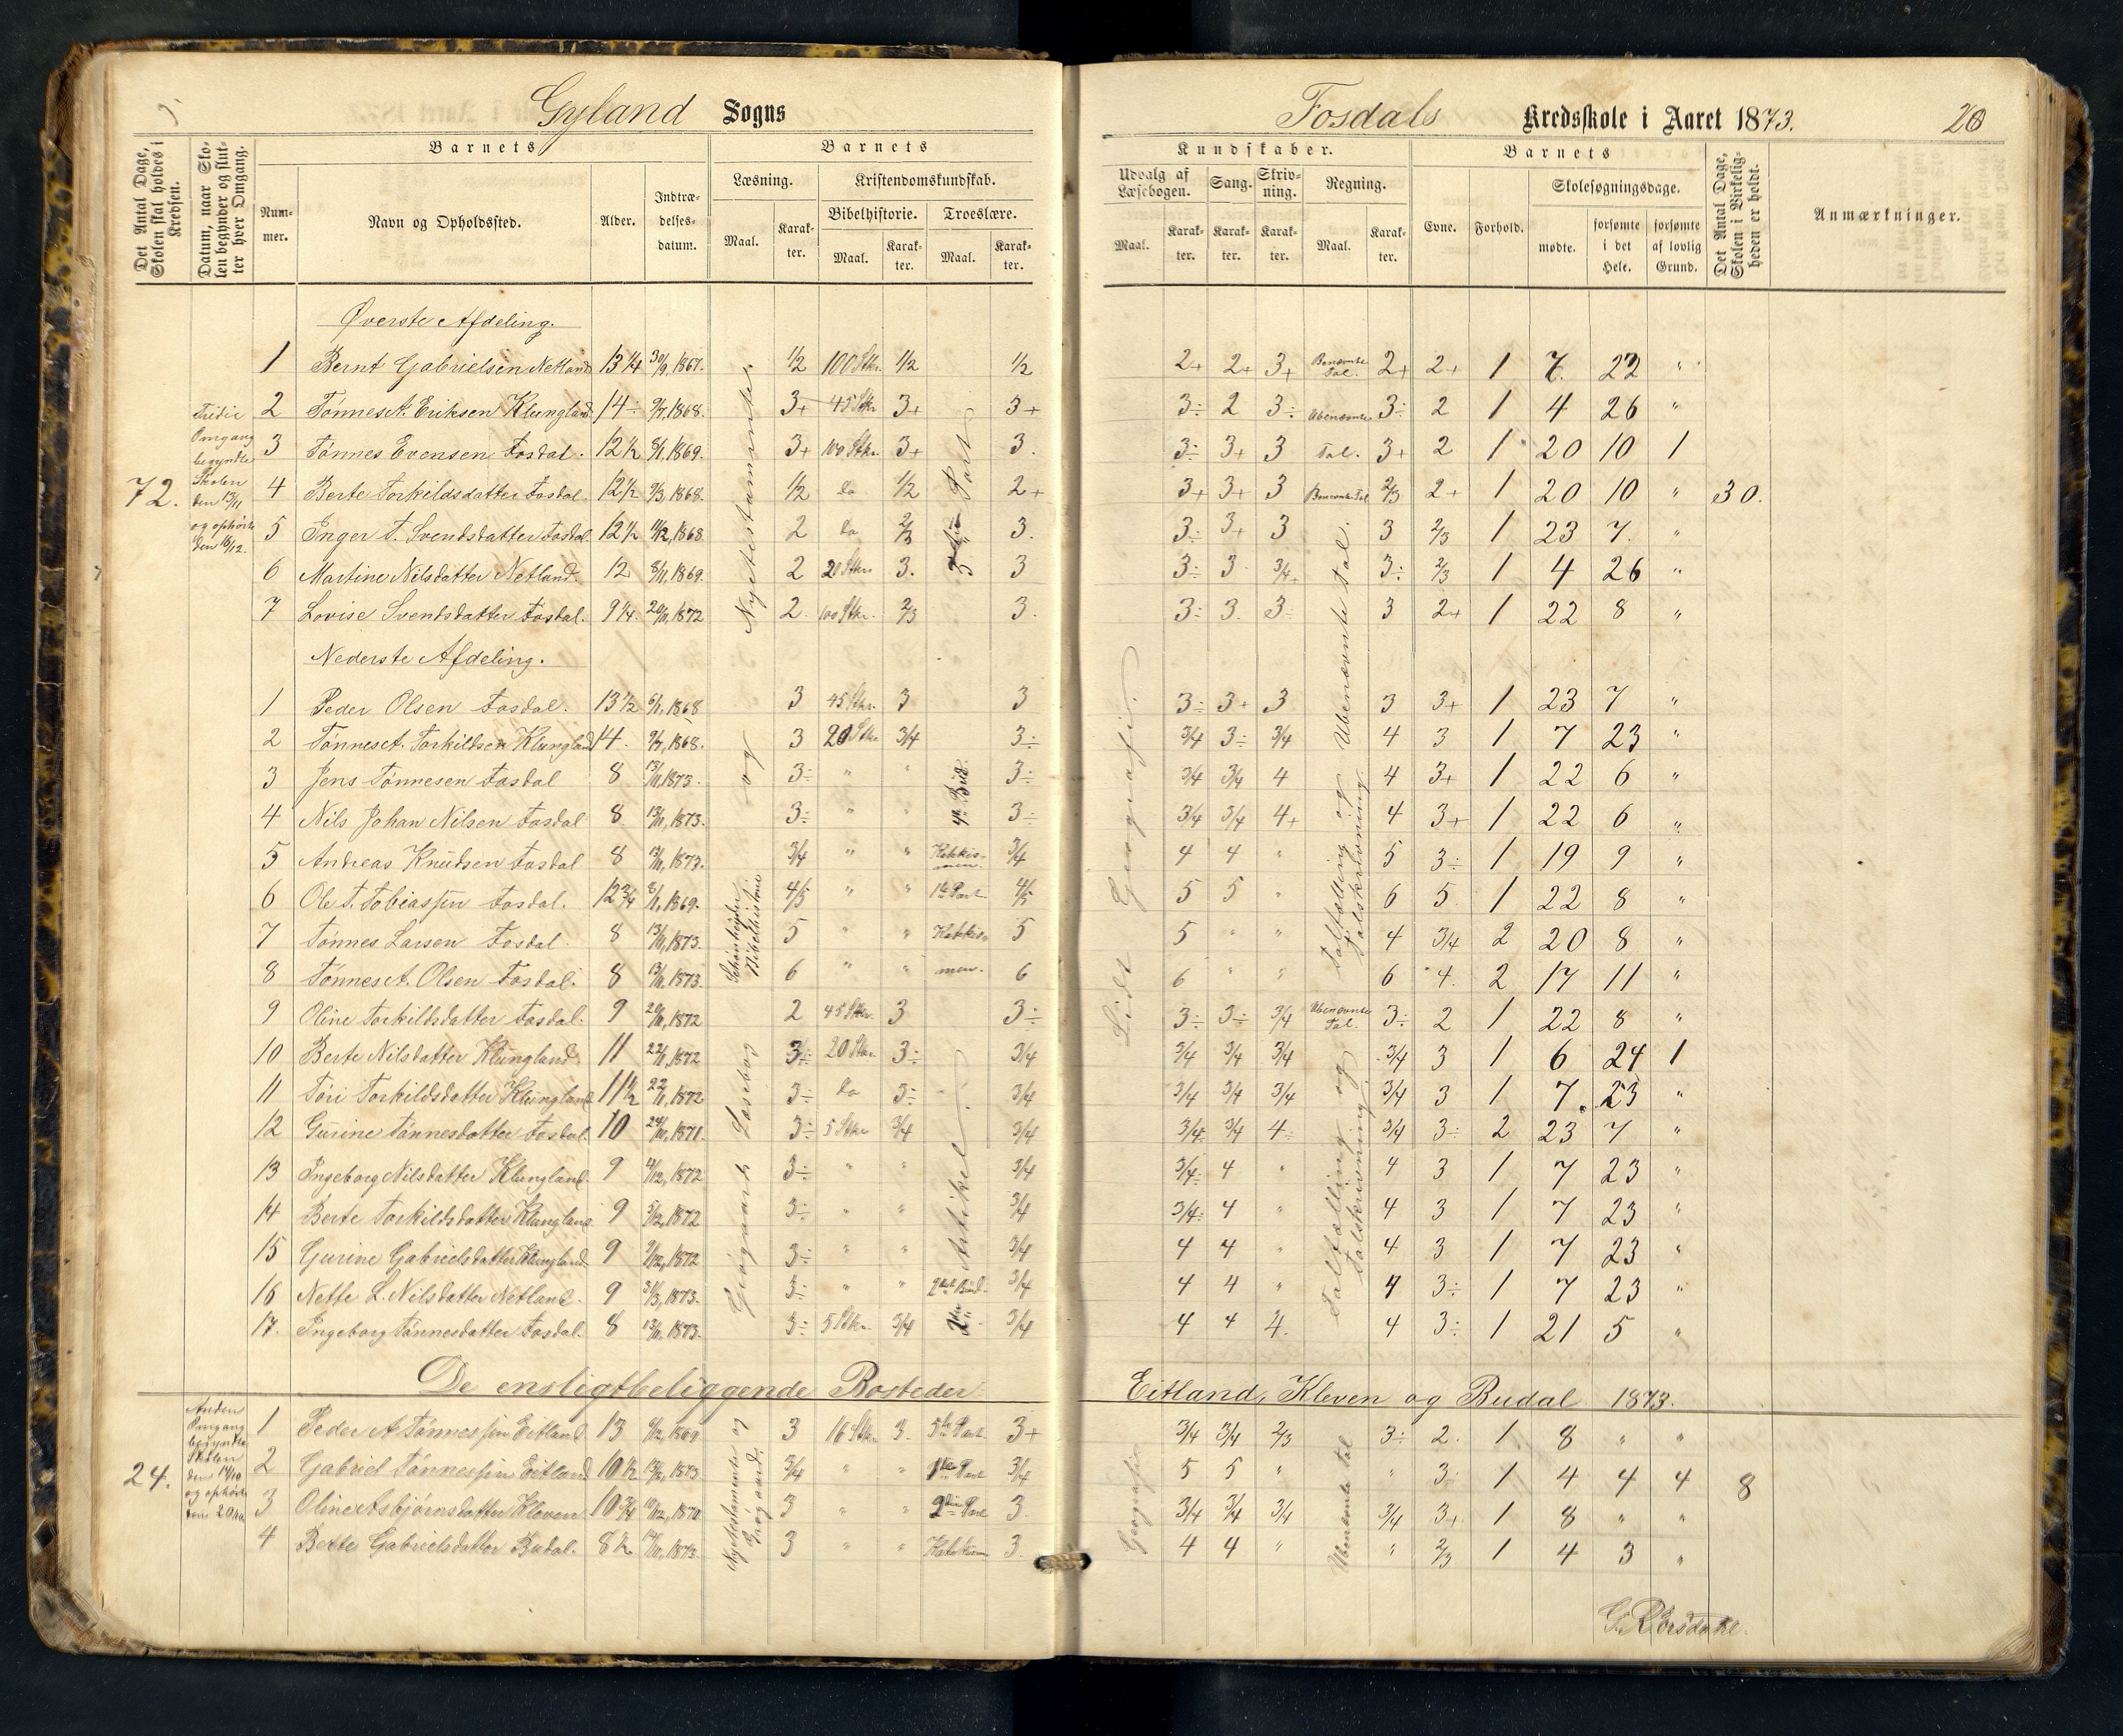 Gyland Sogns
Fosdals Kredsskole i Aaret 1873.
Det Antal Dage, Skolen skal holdes i Kredsen.
Datum, naar Skolen begynder og slutter hver Omgang.
Barnets
Nummer.
Navn og Opholdssted.
Alder.
Indtrædelsesdatum.
Barnets
Læsning.
Maal.
Karakter.
Kristendomskundskab.
Bibelhistorie.
Maal.
Karakter.
Troeslære.
Maal.
Karakter.
Kundskaber.
Udvalg af Læsebogen.
Maal.
Karakter.
Sang.
Karakter.
Skrivning.
Karakter.
Regning.
Maal.
Karakter.
Barnets
Evne.
Forhold.
Skolesøgningsdage.
mødte.
forsømte i det Hele.
forsømte af lovlig Grund.
Det Antal Dage, Skolen i Virkeligheden er holdt.
Anmærkninger.
72.
Tredie Omgang begyndte Skolen den 13/11 og ophørte den 16/12.
Nytestamentet og
3die Part
Lidt Geografi.
Øverste Afdeling.
1 Bernt Gabrielsen Netland 13 1/4 30/9, 1867. 1/2 100 Stkr. 1/2 1/2 2+ 2+ 3+ Benævnte Tal. 2+ 2+ 1 7. 22 "
2 Tønnes A. Eriksen Klungland 14 9/7, 1868. 3+ 45 Stkr 3+ 3+ 3÷ 2 3÷ Ubenævnte 3÷ 2 1 4 26 "
3 Tønnes Evensen Fosdal. 12 1/2 8/1, 1869. 3+ 100 Stkr. 3+ 3. 3÷ 3+ 3 Tal. 3+ 2 1 20 10 1
4 Berte Torkildsdatter Fosdal 12 1/2 9/3, 1868. 1/2 Do 1/2 2+ 3+ 3+ 3 Benævnte Tal 2/3 2+ 1 20 10 " 30.
5 Inger T. Svendsdatter Fosdal 12 1/2 11/12, 1868 2 Do 2/3 3. 3÷ 3+ 3 3 2/3 1 23 7. "
6 Martine Nilsdatter Netland. 12 8/11, 1869. 2 20 Stkr 3. 3 3÷ 3 3/4 3÷ 2/3 1 4 26 "
7 Lovise Svendsdatter Fosdal. 9 1/4 20/11, 1872 2 100 Stkr. 2/3 3. 3÷ 3. 3÷ 3 2+ 1 22 8 "
Nederste Afdeling.
Ubenævnte Tal.
1 Peder Olsen Fosdal. 13 1/2 6/1, 1868 3 45 Stkr. 3 3 3÷ 3+ 3 3 3+ 1 23 7 "
2 Tønnes A. Torkildsen Klungland 14. 9/7, 1868. 3 20 Stkr 3/4 3÷ 3/4 3÷ 3/4 4 3 1 7 23 "
3 Jens Tønnesen Fosdal 8 13/11, 1873. 3÷ " " 3÷ 3/4 3/4 4 4 3+ 1 22 6 "
4 Nils Johan Nilsen Fosdal 8 13/11, 1873. 3÷ " " 4de Bud. 3÷ 3/4 3/4 4+ 4 3+ 1 22 6 "
Taltælling og Talskrivning
5 Andreas Knudsen Fosdal 8 13/11, 1873. 3/4 " " 3/4 4 4 " 5 3÷ 1 19 9 "
6 Ole T. Tobiassen Fosdal. 12 3/4 8/1, 1869. 4/5 " " 1ste Part 4/5 5 5 " 6 5 1 22 8 "
Bibelhistorie
7 Tønnes Larsen Fosdal 8 13/11, 1873. 5 " " 5 5 " " 4 3/4 2 20 8 "
8 Tønnes A. Olsen Fosdal. 8 13/11, 1873. 6 " " 6 6 " " 6 4. 2 17 11 "
9 Oline Torkildsdatter Fosdal. 9 20/11, 1872 2 45 Stkr. 3 3÷ 3÷ 3÷ 3/4 Ubenævnte Tal. 3÷ 2 1 22 8 "
10 Berte Nilsdatter Klungland. 11 22/11, 1872 3÷ 20 Stkr 3÷ 3/4 3/4 3/4 3/4 3/4 3 1 6 24 1
11 Tøri Torkildsdatter Klungland 11 1/2 22/11, 1872 3÷ Do 3÷ 3/4 3/4 3/4 3/4 3/4 3 1 7 23 "
12 Gurine Tønnesdatter Fosdal 10 24/11, 1871. 3÷ 5 Stkr 3/4 3/4 3/4 3/4 4÷ 3/4 3÷ 2 23 7 "
13 Ingeborg Nilsdatter Klungland. 9 4/12, 1872 3÷ " " 3/4 3/4 4 " 4 3 1 7 23 "
14 Berte Torkildsdatter Klungland 9 5/12, 1872 3÷ " " 3/4 3/4 4 " 4 3 1 7 23 "
15 Gurine Gabrielsdatter Klungland 9 9/12, 1872 3÷ " " 3/4 4 4 " 4 3 1 7 23 "
16 Nette L. Nilsdatter Netland. 9 31/3, 1873. 3÷ " " 3/4 4 4 " 4 3÷ 1 7 23 "
17. Ingeborg Tønnesdatter Fosdal. 8 13/11, 1873. 3÷ 5 Stkr. 3/4 3/4 4 4 4. 4 3÷ 1 21 5 "
Læsebog
Artikel
Taltælling og Talskrivning
De ensligtbeliggende Bosteder Eitland, Kleven og Budal 1873.
24.
Anden Omgang begyndte Skolen den 14/10 og ophørte den
Nytestamente og
Geografi
Ubenævnte Tal
1 Peder A Tønnessen Eitland 13 6/12, 1869 3 16 Stkr 3. 5te Part 3+ 3/4 3/4 2/3 3÷ 2. 1 8 " "
2 Gabriel Tønnessen Eitland 10 1/2 1873 3/4 " " 1ste Part 3/4 5 5 " " 3÷ 1 4 4 4 8
3 Oline Asbjørnsdatter Kleven 10 3/4 10/12, 1870 3 " " 2den Part 3. 3/4 3/4 3/4 3/4 3+ 1 8 " "
4 Berte Gabrielsdatter Budal. 8 1/2 14/10, 1873 3 " " 3. 4 4 " " 2/3 1 4 3 "